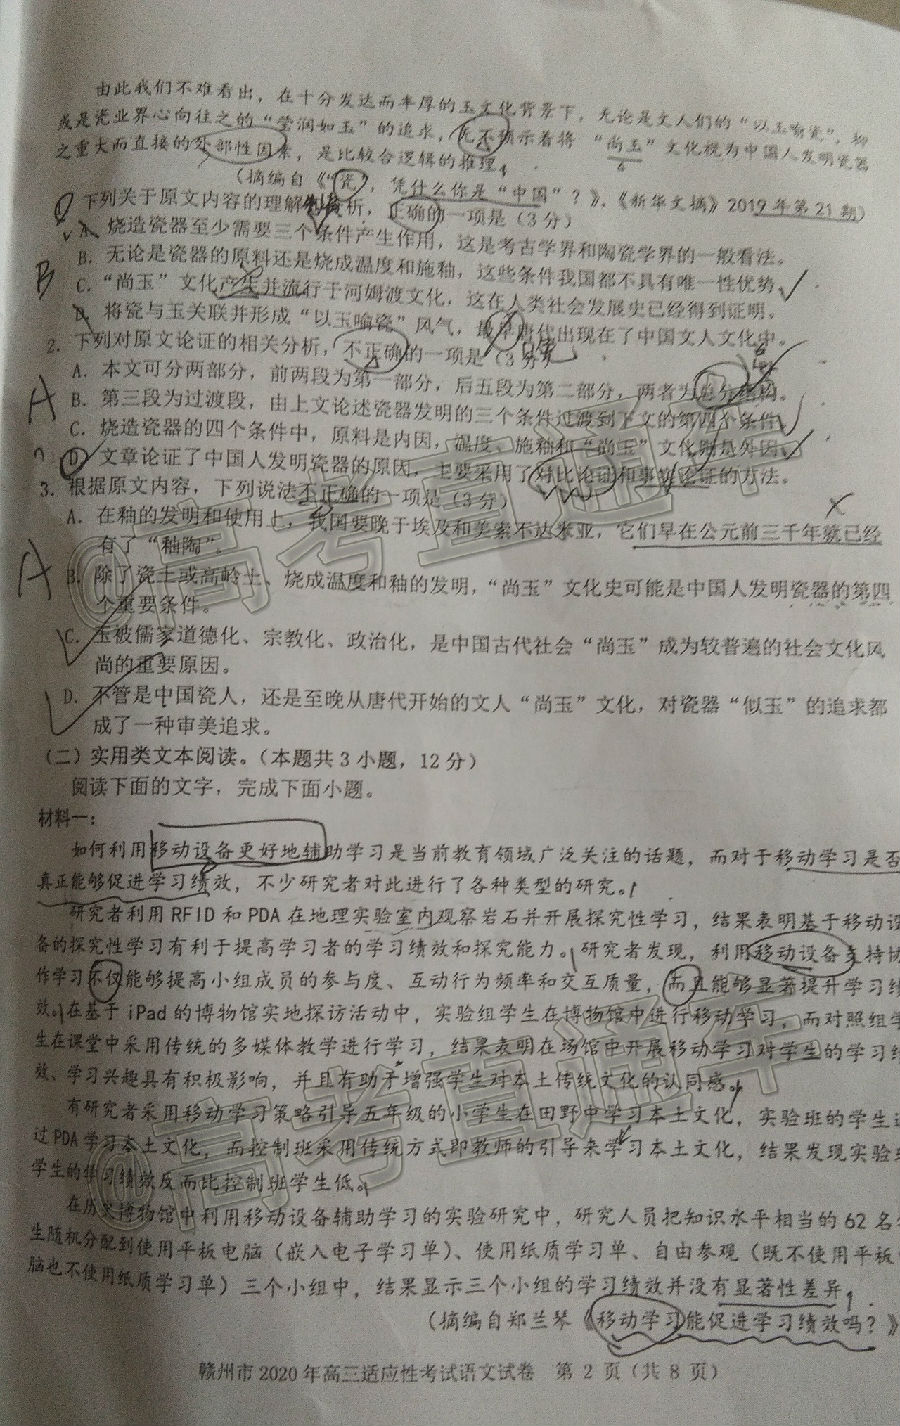 由此我们不难看出，在十分发达而丰厚的玉文化背景下，无论是文人们的“以玉喻瓷”，抑
或是瓷业界心向往之的“莹润如玉”的追求，无不预示着将“尚玉”文化视为中国人发明瓷器
之重大而直接的外部性因素，是比较合逻辑的推理。
（摘编自《“瓷”，凭什么你是“中国”？》，《新华文摘》2019年第21期）
下列关于原文内容的理解和赏析，正确的一项是（3分）
A．烧造瓷器至少需要三个条件产生作用，这是考古学界和陶瓷学界的一般看法。
B．无论是瓷器的原料还是烧成温度和施釉，这些条件我国都不具有唯一性优势。
B
C．“尚玉”文化产生并流行于河姆渡文化，这在人类社会发展史已经得到证明。
D．将瓷与玉关联并形成“以玉喻瓷”风气，最早唐代出现在了中国文人文化中。
2．下列对原文论证的相关分析，不正确的一项是（3分）
A．本文可分两部分，前两段为第一部分，后五段为第二部分，两者为总分结构。
A
B．第三段为过渡段，由上文论述瓷器发明的三个条件过渡到下文的第四个条件。
C．烧造瓷器的四个条件中，原料是内因，温度、施釉和“尚玉”文化则是外因。
D．文章论证了中国人发明瓷器的原因，主要采用了对比论证和事例论证的方法。
3．根据原文内容，下列说法不正确的一项是（3分）
A．在釉的发明和使用上，我国要晚于埃及和美索不达米亚，它们早在公元前三千年就已经
有了“釉陶”。
A
B．除了瓷土或高岭土、烧成温度和釉的发明，“尚玉”文化史可能是中国人发明瓷器的第四
个重要条件。
C．玉被儒家道德化、宗教化、政治化，是中国古代社会“尚玉”成为较普遍的社会文化风
尚的重要原因。
D．不管是中国瓷人，还是至晚从唐代开始的文人“尚玉”文化，对瓷器“似玉”的追求都
成了一种审美追求。
（二）实用类文本阅读。（本题共3小题，12分）
阅读下面的文字，完成下面小题。
材料一：
如何利用移动设备更好地辅助学习是当前教育领域广泛关注的话题，而对于移动学习是否
真正能够促进学习绩效，不少研究者对此进行了各种类型的研究。
研究者利用RFID和PDA在地理实验室内观察岩石并开展探究性学习，结果表明基于移动设
备的探究性学习有利于提高学习者的学习绩效和探究能力。研究者发现，利用移动设备支持协
作学习不仅能够提高小组成员的参与度、互动行为频率和交互质量，而且能够显著提升学习绩
效。在基于iPad的博物馆实地探访活动中，实验组学生在博物馆中进行移动学习，而对照组学
生在课堂中采用传统的多媒体教学进行学习，结果表明在场馆中开展移动学习对学生的学习绩
效、学习兴趣具有积极影响，并且有助于增强学生对本土传统文化的认同感。
有研究者采用移动学习策略引导五年级的小学生在田野中学习本土文化，实验班的学生通
过PDA学习本土文化，而控制班采用传统方式即教师的引导来学习本土文化，结果发现实验班
学生的学习绩效反而比控制班学生低。
在历史博物馆中利用移动设备辅助学习的实验研究中，研究人员把知识水平相当的62名学
生随机分配到使用平板电脑（嵌入电子学习单）、使用纸质学习单、自由参观（既不使用平板电
脑也不使用纸质学习单）三个小组中，结果显示三个小组的学习绩效并没有显著性差异。
（摘编自郑兰琴《移动学习能促进学习绩效吗？》
赣州市2020年高三适应性考试语文试卷 第2页（共8页）
@高考直通车
@高考直通车